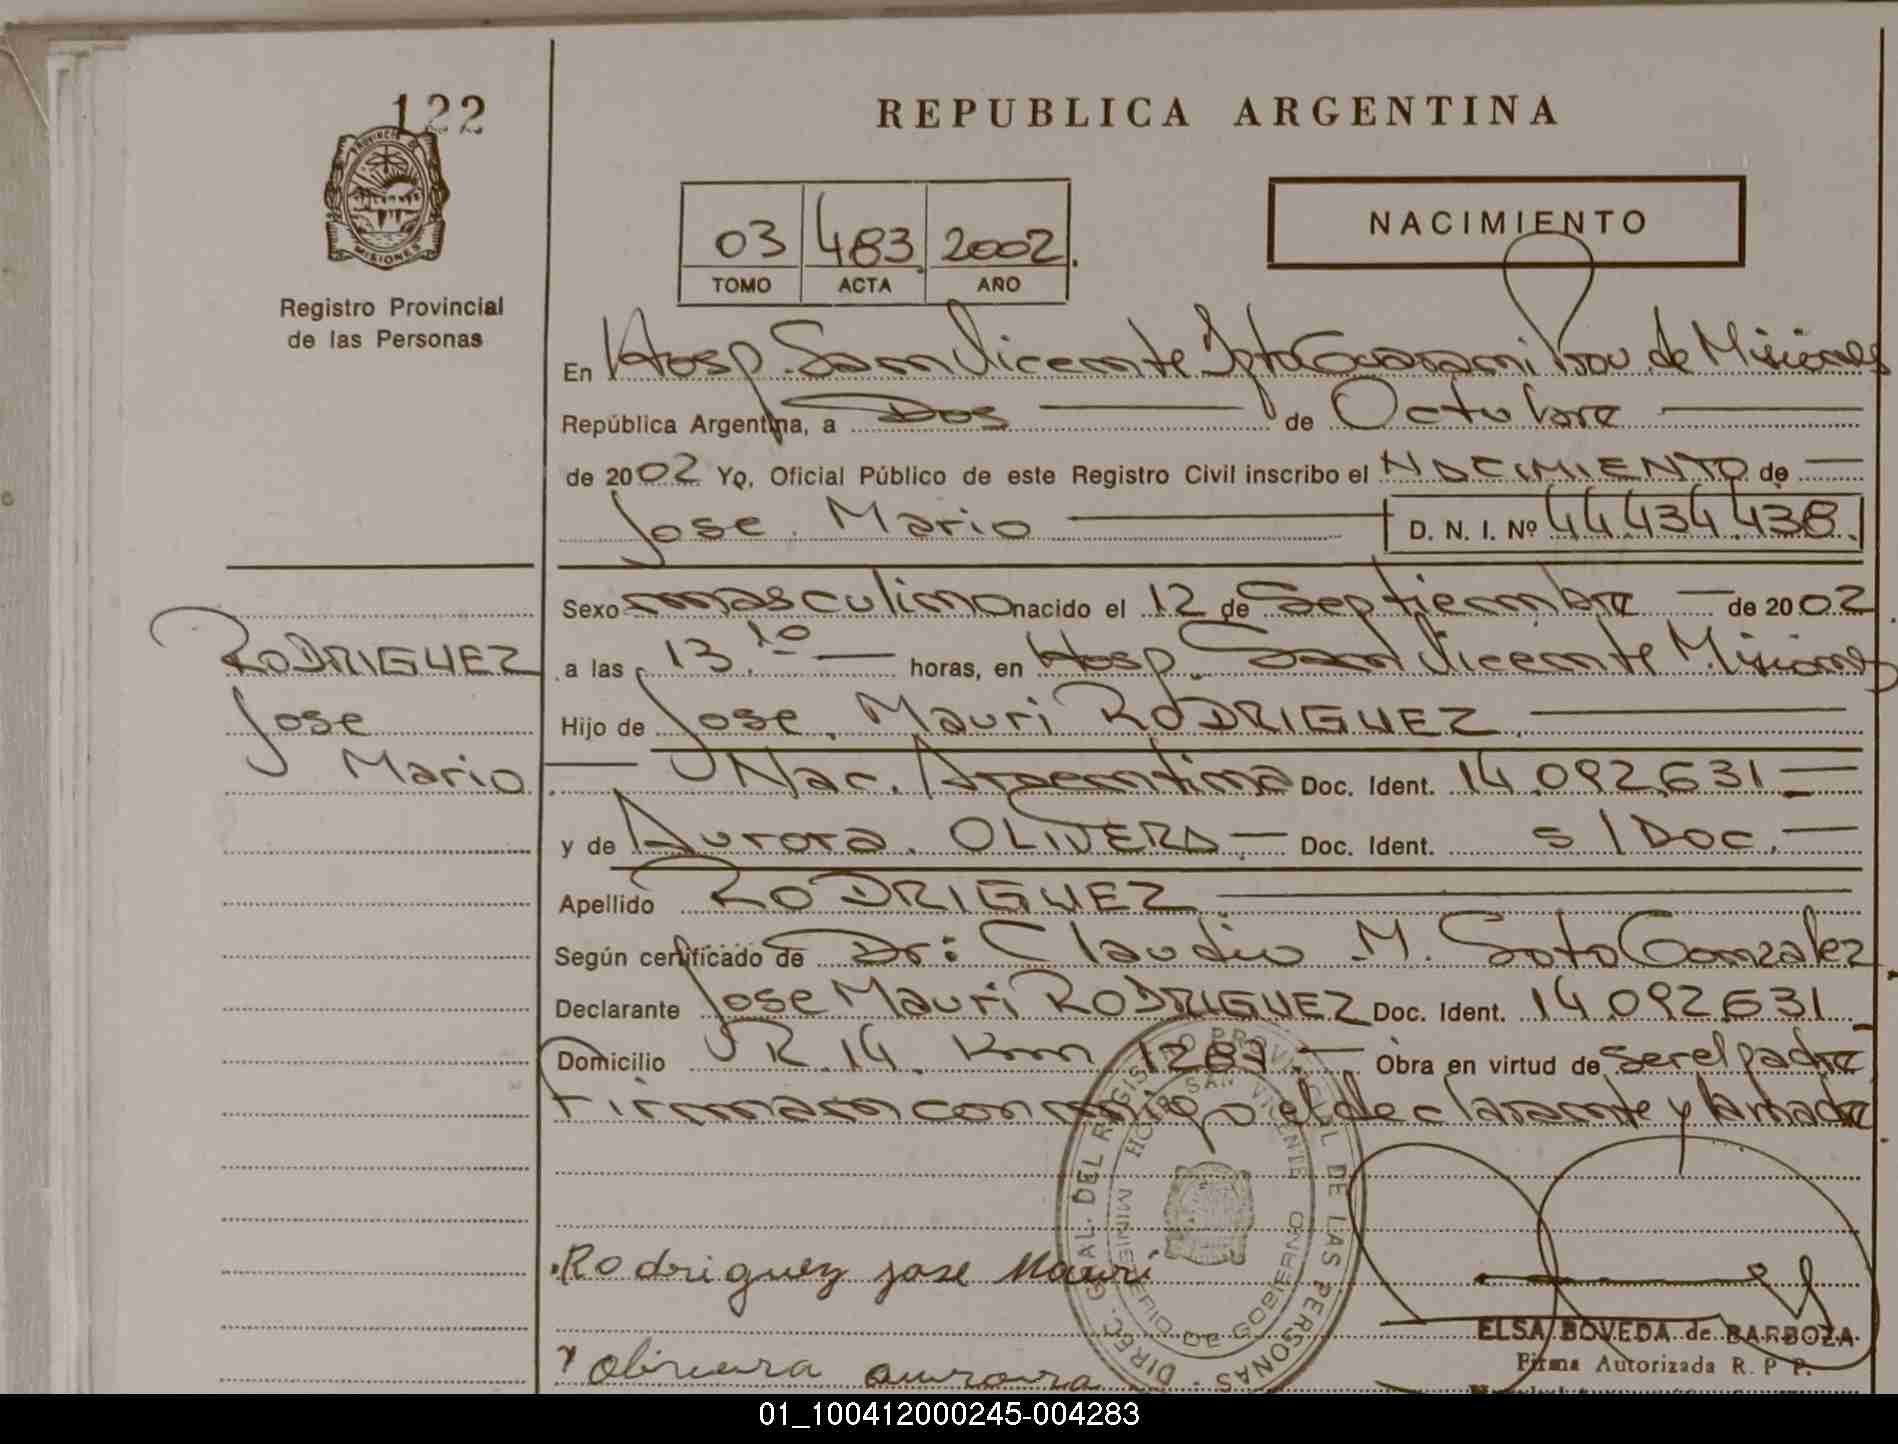 122
REPUBLICA ARGENTINA
PROVINCIA DE MISIONES
Registro Provincial
de las Personas
03 483 2002.
TOMO ACTA AÑO
NACIMIENTO
En Hosp. San Vicente Dpto Guarani Prov. de Misiones
República Argentina, a Dos de Octubre
de 2002 Yo, Oficial Público de este Registro Civil inscribo el NACIMIENTO de
Jose Mario D. N. I. Nº 44.434.438.
Sexo masculino nacido el 12 de Septiembre de 2002
RODRIGUEZ
Jose
Mario
a las 13.10 horas, en Hosp. San Vicente Misiones
Hijo de Jose Mauri RODRIGUEZ
Nac. Argentina Doc. Ident. 14.092.631
y de Aurora OLIVERA Doc. Ident. S/Doc.
Apellido RODRIGUEZ
Según certificado de Dr: Claudio M. Soto Gonzalez
Declarante Jose Mauri RODRIGUEZ Doc. Ident. 14.092.631
Domicilio R. 14 Km 1287 Obra en virtud de ser el padre
Firman conmigo el declarante y la madre
DIREC. GRAL. DEL REGISTRO PROVINCIAL DE LAS PERSONAS
SAN VICENTE
MINISTERIO DE GOBIERNO
Rodriguez jose Mauri
olivera aurora
ELSA BOVEDA de BARBOZA
Firma Autorizada R. P. P.
01_100412000245-004283